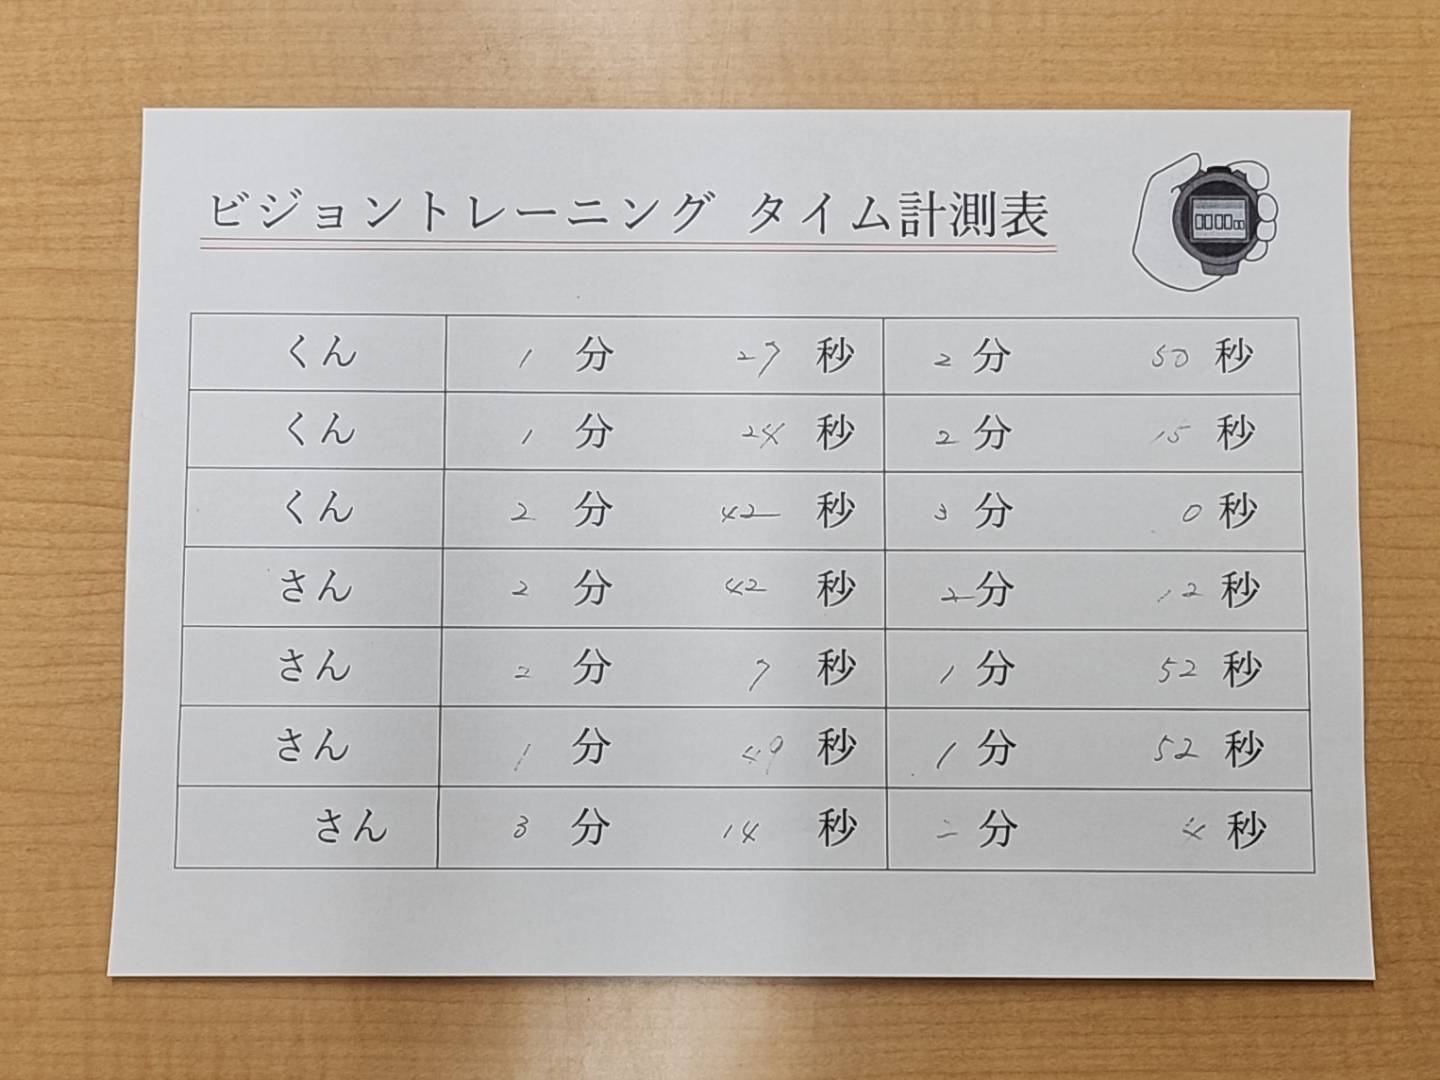 ビジョントレーニング タイム計測表
00:00 00
くん 1 分 27 秒 2 分 50 秒
くん 1 分 24 秒 2 分 15 秒
くん 2 分 42 秒 3 分 0 秒
さん 2 分 42 秒 2 分 12 秒
さん 2 分 7 秒 1 分 52 秒
さん 1 分 49 秒 1 分 52 秒
さん 3 分 14 秒 分 4 秒